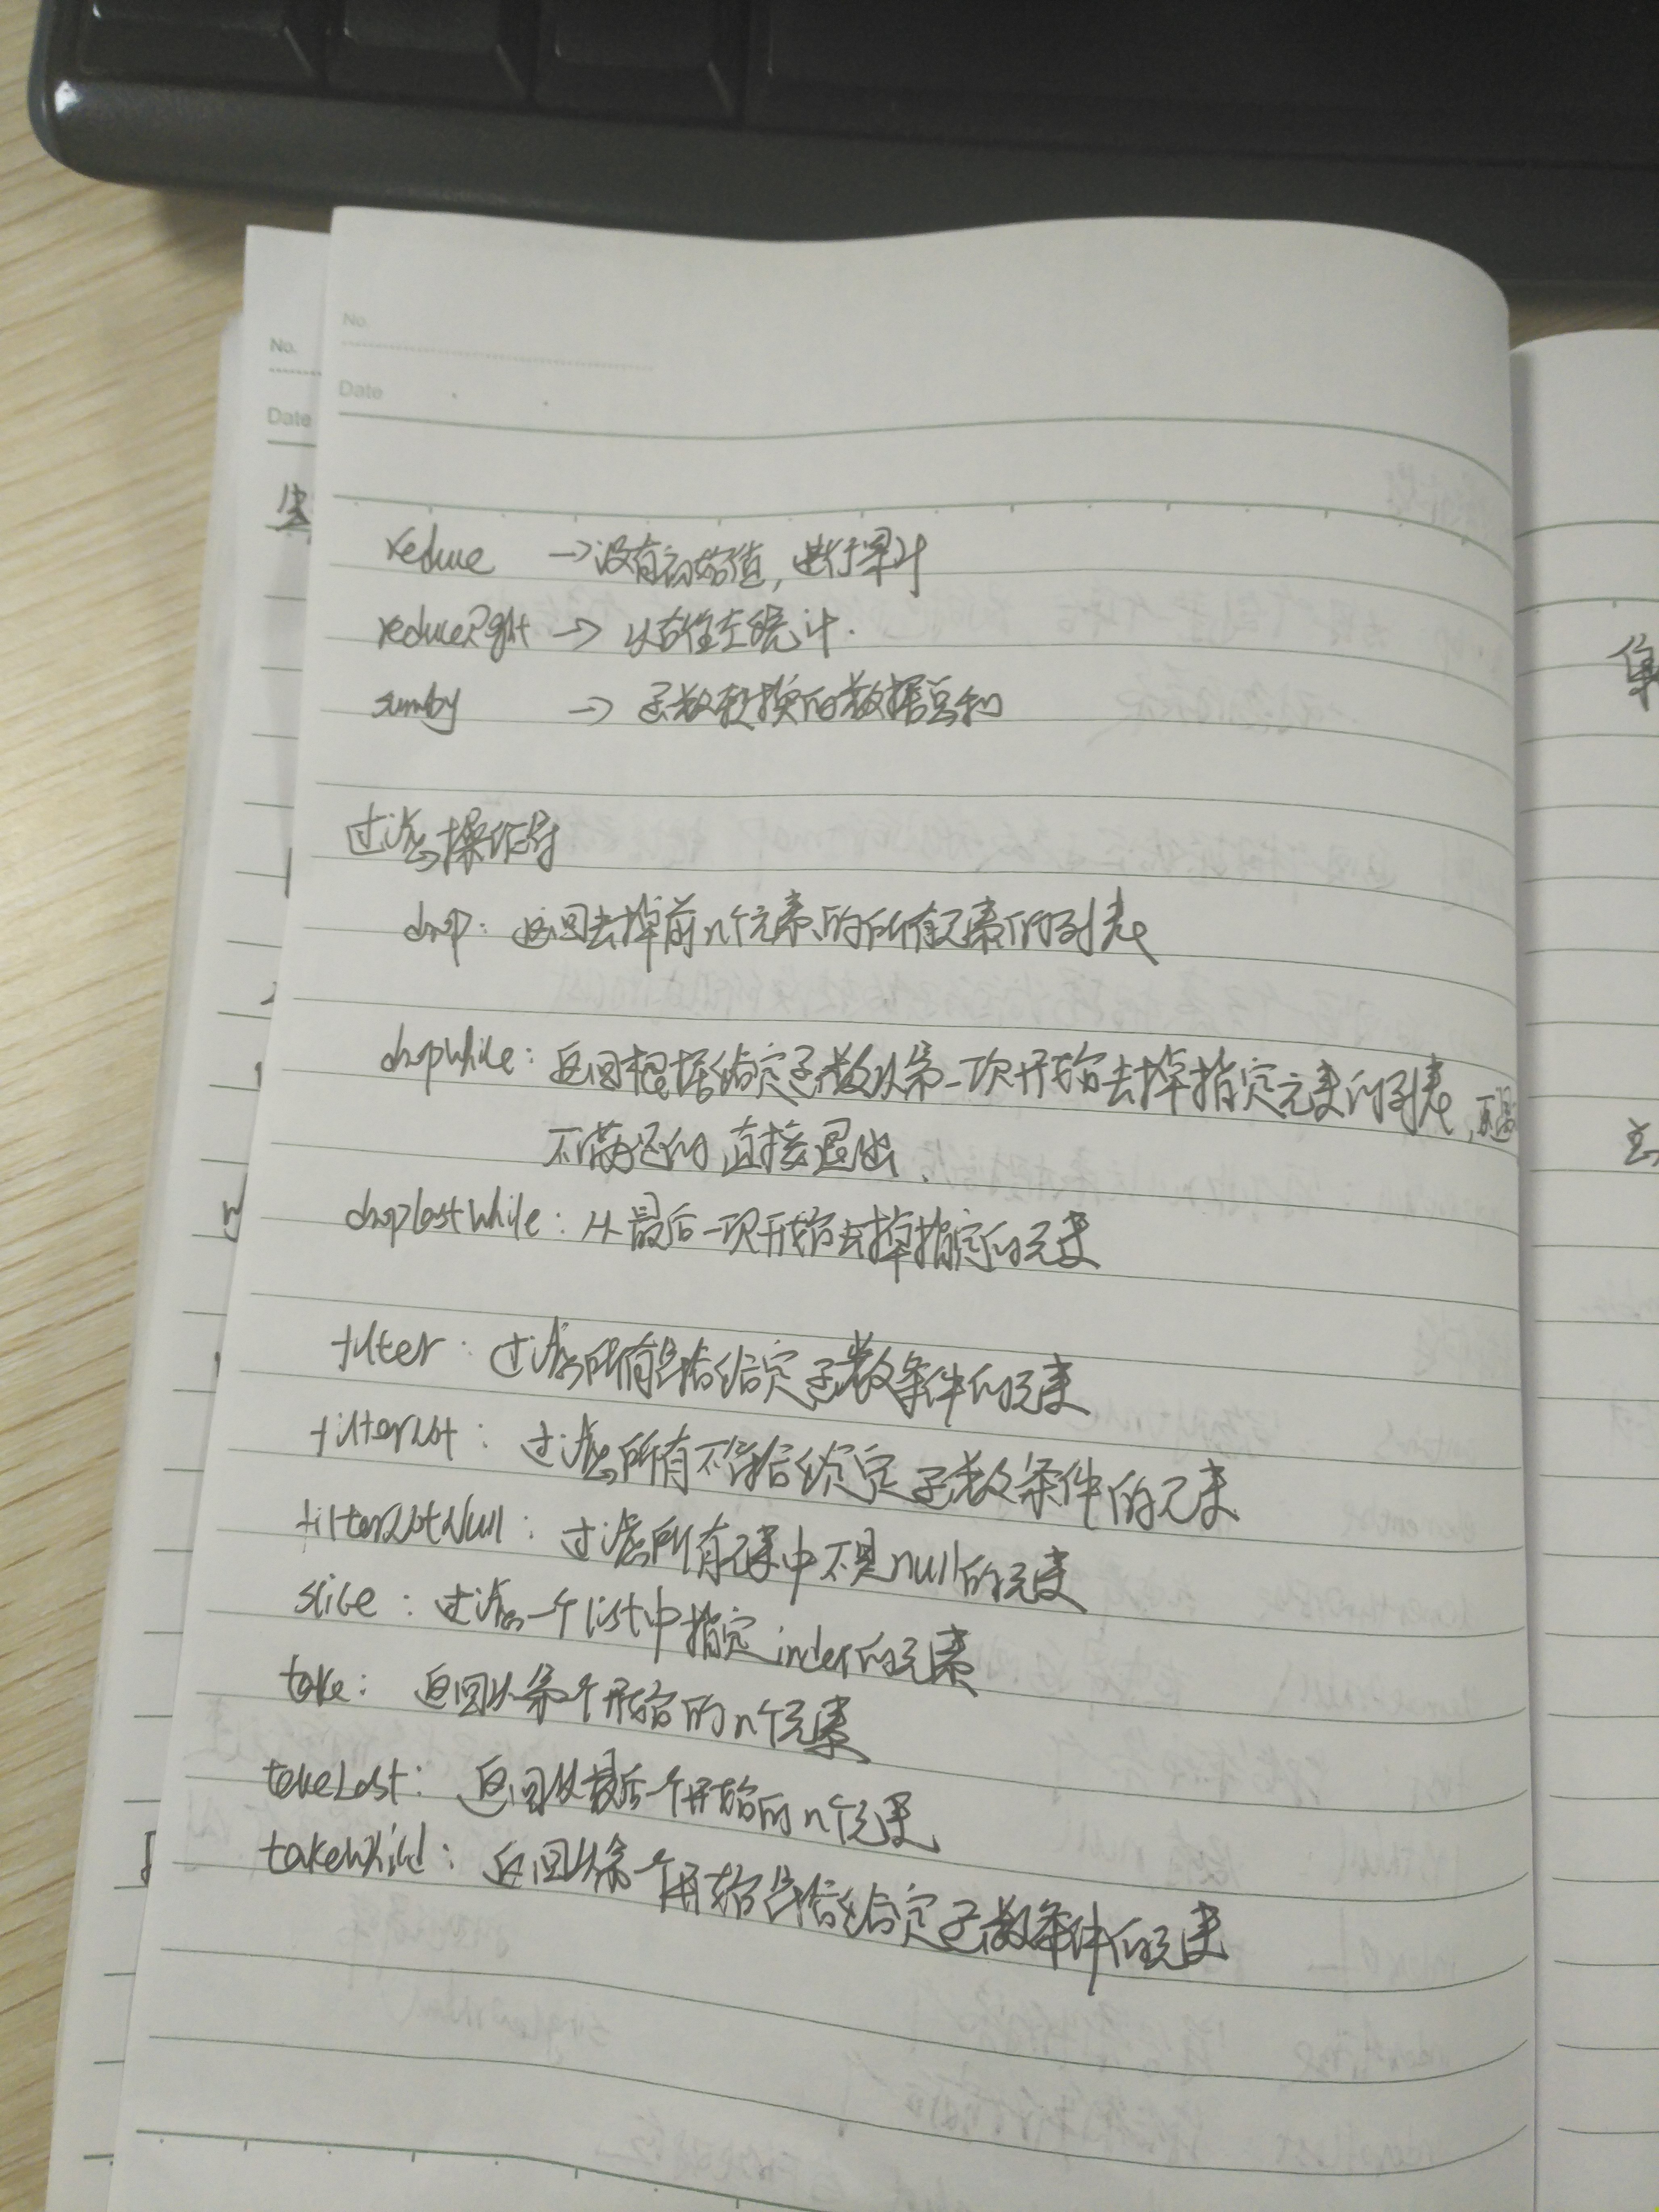 No.
Date
No.
Date
reduce → 没有初始值，进行累计
reduceRight → 从右往左统计.
sumby → 函数转换的数据总和
过滤操作符
drop: 返回去掉前n个元素的所有元素的列表
dropWhile: 返回根据给定函数从第一项开始去掉指定元素的列表，
不满足的直接退出.
dropLastWhile: 从最后一项开始去掉指定的元素
filter: 过滤所有符合给定函数条件的元素
filterNot: 过滤所有不符合给定函数条件的元素
filterNotNull: 过滤所有元素中不是null的元素
slice: 过滤一个list中指定index的元素
take: 返回从第一个开始的n个元素
takeLast: 返回从最后一个开始的n个元素
takeWhile: 返回从第一个开始符合给定函数条件的元素